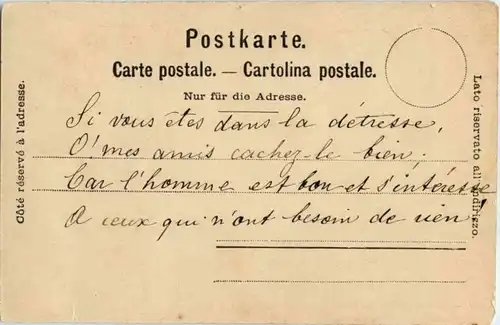 Postkarte.
Carte postale. — Cartolina postale.
Nur für die Adresse.
Côté réservé à l'adresse.
Lato riservato all'indirizzo.
Si vous êtes dans la détresse,
O! mes amis cachez-le bien;
Car l'homme est bon et s'intéresse
A ceux qui n'ont besoin de rien!